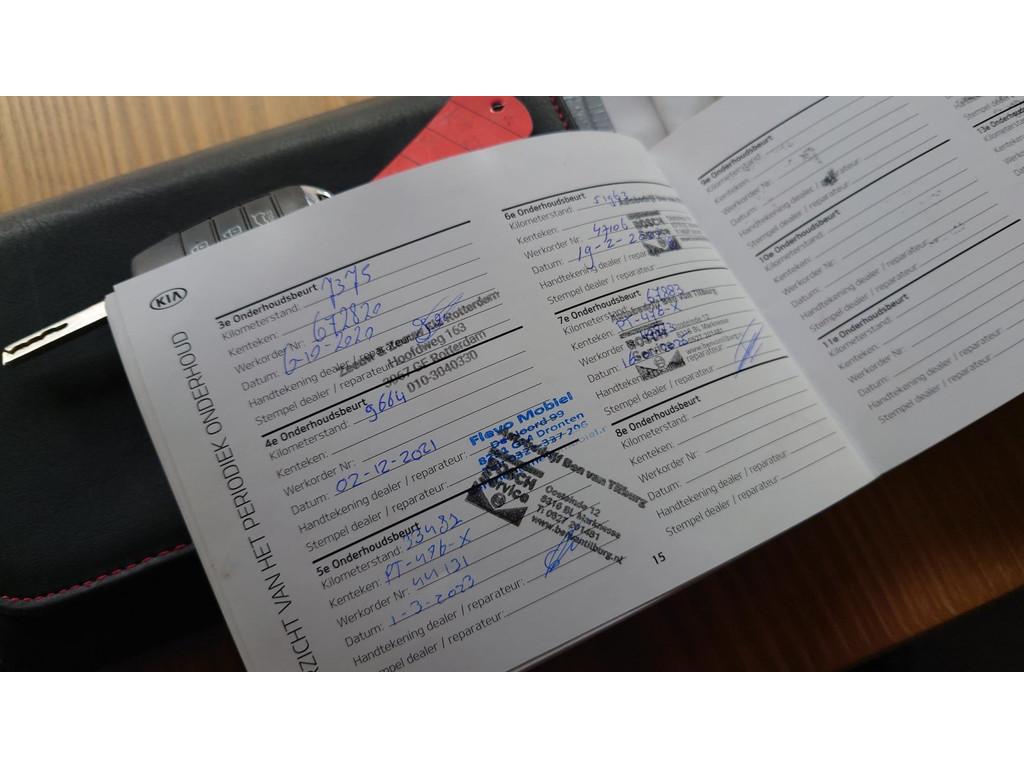 KIA
RZICHT VAN HET PERIODIEK ONDERHOUD
3e Onderhoudsbeurt
Kilometerstand: 7375
Kenteken:
Werkorder Nr: 672820
Datum: 6-10-2020
Handtekening dealer / reparateur:
Stempel dealer / reparateur:
Zeeuw & Zeeuw Kia Rotterdam
Hoofdweg 163
3067 GE Rotterdam
010-3040330
4e Onderhoudsbeurt
Kilometerstand: 9664
Kenteken:
Werkorder Nr:
Datum: 02-12-2021
Handtekening dealer / reparateur:
Stempel dealer / reparateur:
Flevo Mobiel
De Noord 99
Dronten
5e Onderhoudsbeurt
Kilometerstand: 23482
Kenteken: PT-496-X
Werkorder Nr: 44131
Datum: 1-3-2023
Handtekening dealer / reparateur:
mpel dealer / reparateur:
Autobedrijf Ben van Tilburg
BOSCH
Service
Oosteinde 12
8316 BL Marknesse
T: 0527 201481
www.benvantilburg.nl
6e Onderhoudsbeurt
Kilometerstand:
Kenteken:
Werkorder Nr: 47106
Datum: 19-2-
Handtekening dealer / reparateur:
Stempel dealer / reparateur:
BOSCH
7e Onderhoudsbeurt
Kilometerstand: 67883
Kenteken: PT-496-X
Werkorder Nr:
Datum:
Handtekening
Stempel dealer / reparateur:
8e Onderhoudsbeurt
Kilometerstand:
Kenteken:
Werkorder Nr:
Datum:
Handtekening dealer / reparateur:
Stempel dealer / reparateur:
15
9e Onderhoudsbeurt
Kilometerstand:
Kenteken:
Werkorder Nr:
Datum:
Handtekening dealer / reparateur:
Stempel dealer / reparateur:
10e Onderhoudsbeurt
Kilometerstand:
Kenteken:
Werkorder Nr:
Datum:
Handtekening dealer / reparateur:
Stempel dealer / reparateur:
11e Onderhoudsbeurt
Kilometerstand:
Kenteken:
Werkorder Nr:
Datum:
Handtekening dealer / reparateur:
Stempel dealer / reparateur:
Stempel deal
13e Onderhoud
Kilometerstan
Kenteken:
Werkord
Datum